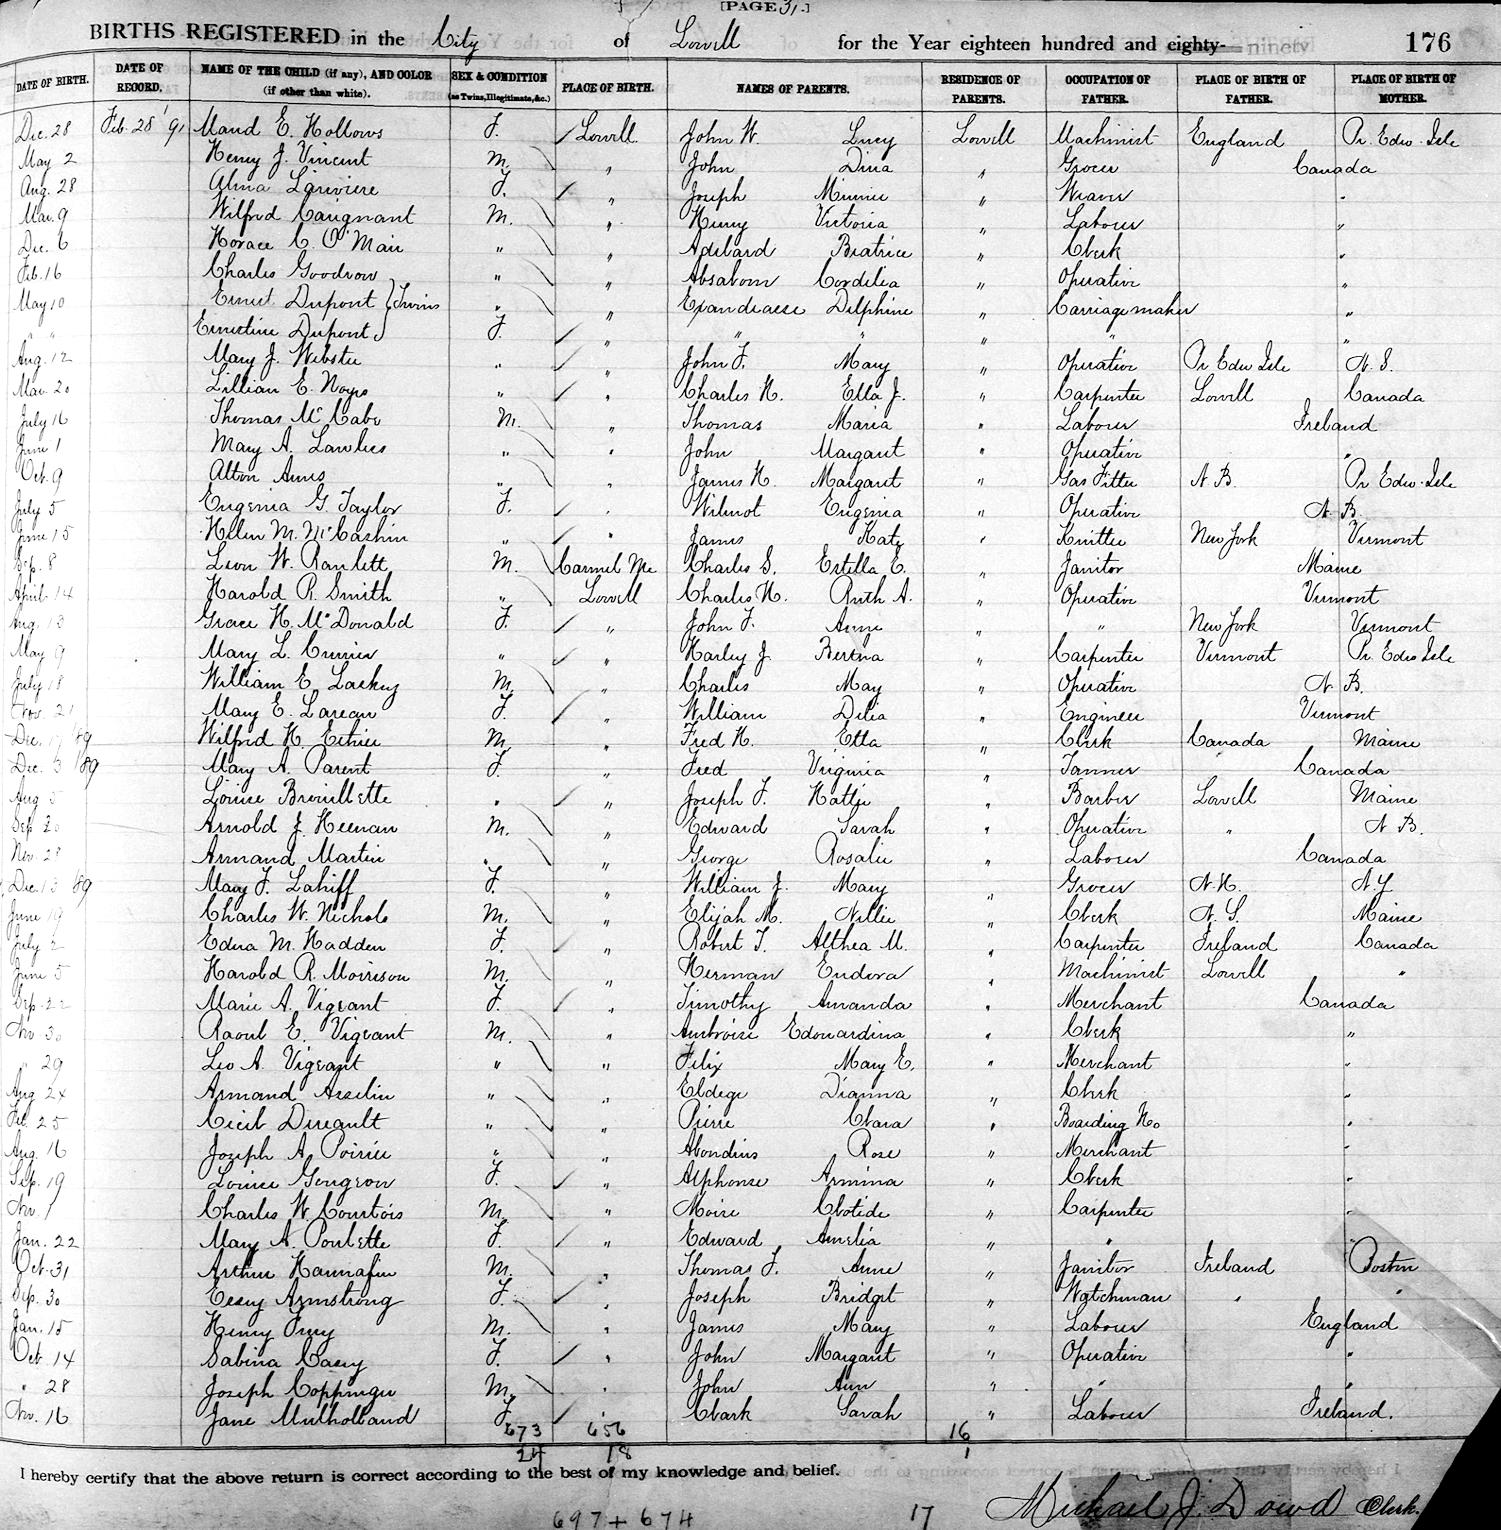 [PAGE 31.]
BIRTHS REGISTERED in the City of Lowell for the Year eighteen hundred and eighty- ninety 176
DATE OF BIRTH. DATE OF RECORD. NAME OF THE CHILD (if any), AND COLOR (if other than white). SEX & CONDITION (as Twins, Illegitimate, &c.) PLACE OF BIRTH. NAMES OF PARENTS. RESIDENCE OF PARENTS. OCCUPATION OF FATHER. PLACE OF BIRTH OF FATHER. PLACE OF BIRTH OF MOTHER.
Dec. 28 Feb. 28 '91 Maud E. Hollows F. Lowell. John W. Lucy Lowell Machinist England Pr. Edw. Isle
May 2 Henry J. Vincent M. " John Dina " Grocer Canada
Aug. 28 Alma Lariviere F. " Joseph Minnie " Weaver "
Mar. 9 Wilfrid Carignant M. " Henry Victoria " Laborer "
Dec. 6 Horace C. O'Mair " " Adelard Beatrice " Clerk "
Feb. 16 Charles Goodrow " " Absalom Cordelia " Operative "
May 10 Ernest Dupont } Twins " " Delphine " Carriage maker "
" " Ernestine Dupont } F. " " " " " "
Aug. 12 Mary J. Webster " " John F. Mary " Operative Pr Edw Isle N. S.
Mar. 20 Lillian E. Noyes " " Charles H. Ella J. " Carpenter Lowell Canada
July 16 Thomas McCabe M. " Thomas Maria " Laborer Ireland
June 1 Mary A. Lawless " " John Margaret " Operative "
Oct. 9 Alton Ames " " James H. Margaret " Gas Fitter N. B. Pr Edw. Isle
July 5 Eugenia G. Taylor F. " Wilmot Eugenia " Operative N. B.
June 15 Helen M. McCashin " " James Kate " Knitter New York Vermont
Sep. 8 Leon W. Ranlett M. Carmel Me Charles S. Estella E. " Janitor Maine
April 14 Harold R. Smith " Lowell Charles H. Ruth A. " Operative Vermont
Aug. 13 Grace H. McDonald F. " John F. Anne " " New York Vermont
May 9 Mary L. " " Harley J. Bertha " Carpenter Vermont Pr. Edw Isle
July 18 William E. Lackey M. " Charles May " Operative N. B.
Nov. 21 Mary E. Lareau F. " William Delia " Engineer Vermont
Dec. 17 '89 Wilfrid H. Ethier M. " Fred H. Etta " Clerk Canada Maine
Dec. 3 '89 Mary A. Parent F. " Fred Virginia " Tanner Canada
Aug 5 Louise Brouillette " " Joseph F. Hattie " Barber Lowell Maine
Sep 20 Arnold J. Heenan M. " Edward Sarah " Operative " N. B.
Nov. 28 Armand Martin " " George Rosalie " Laborer Canada
Dec. 13 89 Mary F. Lahiff F. " William J. Mary " Grocer N. H. N. Y
June 19 Charles W. Nichols M. " Elijah M. Nellie " Clerk N. S. Maine
July 2 Edna M. Hadden F. " Robert T. Althea M. " Carpenter Ireland Canada
June 5 Harold R. Morrison M. " Herman Eudora " Machinist Lowell "
Sep. 22 Marie A. Vigeant F. " Timothy Amanda " Merchant Canada
Nov 30 Raoul E. Vigeant M. " Ambroise Edouardina " Clerk "
" 29 Leo A. Vigeant " " Felix Mary E. " Merchant "
Aug 24 Armand Asselin " " Eldege Dianna " Clerk "
Feb. 25 Cecil " " Pierre Clara " Boarding Ho "
Aug. 16 Joseph A. Poirier " " Abondius Rose " Merchant "
Sep. 19 Louise Gengrow F. " Alphonse Armina " Clerk "
Nov. 1 Charles W. Courtois M. " Moise Clotide " Carpenter "
Jan. 22 Mary A. Poulette F. " Edward Amelia " " "
Oct. 31 Arthur Hannafin M. " Thomas F. Anne " Janitor Ireland Boston
Sep. 30 Armstrong F. " Joseph Bridget " Watchman " "
Jan. 15 Henry M. " James Mary " Laborer England
Oct. 14 Sabina Casey F. " John Margaret " Operative "
" 28 Joseph Coppinger M. " John Ann " " "
Nov. 16 Jane Mulholland F. " Clark Sarah " Laborer Ireland.
673 656 16
24 18 1
I hereby certify that the above return is correct according to the best of my knowledge and belief.
697 + 674 17 Michael J. Dowd Clerk.